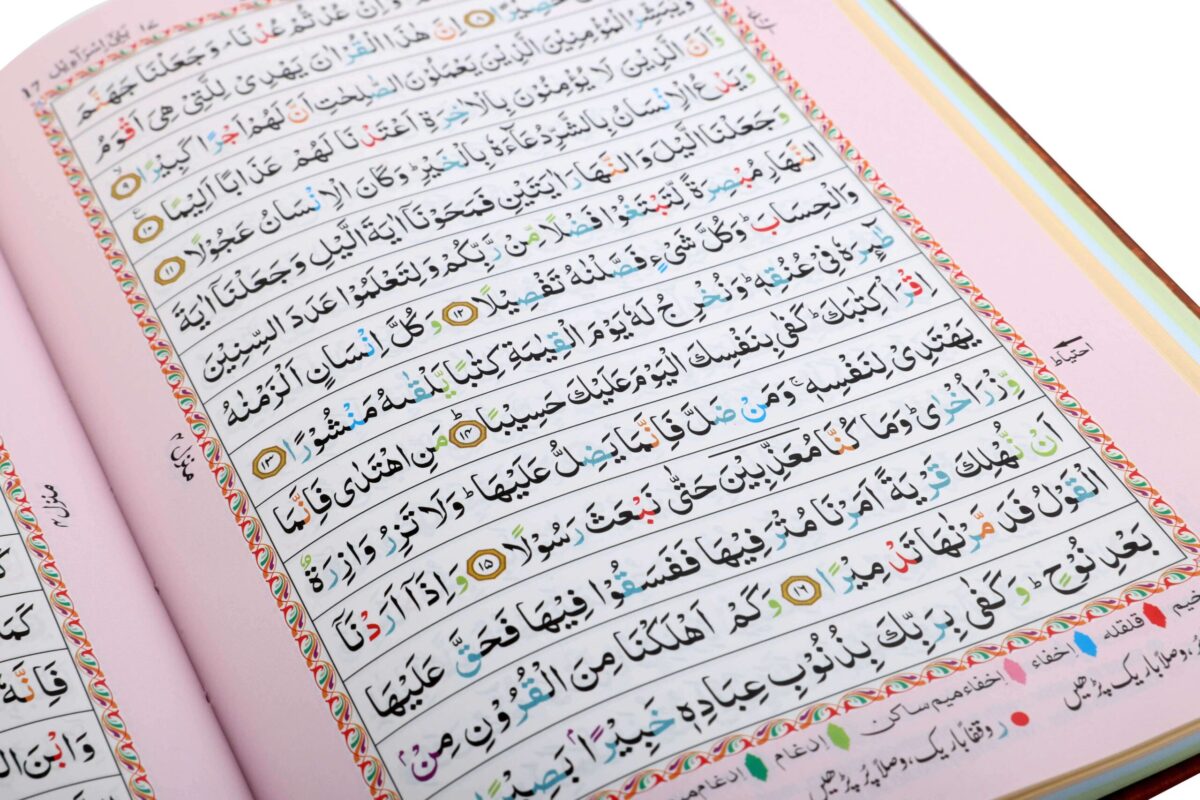 وَاِنْ عُدْتُّمْ عُدْنَا ۘ وَجَعَلْنَا جَهَنَّمَ
حَصِيْرًا ۸ اِنَّ هٰذَا الْقُرْاٰنَ يَهْدِىْ لِلَّتِىْ هِىَ اَقْوَمُ
وَيُبَشِّرُ الْمُؤْمِنِيْنَ الَّذِيْنَ يَعْمَلُوْنَ الصّٰلِحٰتِ اَنَّ لَهُمْ اَجْرًا كَبِيْرًا ۹
وَّاَنَّ الَّذِيْنَ لَا يُؤْمِنُوْنَ بِالْاٰخِرَةِ اَعْتَدْنَا لَهُمْ عَذَابًا اَلِيْمًا ۱۰
وَيَدْعُ الْاِنْسَانُ بِالشَّرِّ دُعَآءَهٗ بِالْخَيْرِ ؕ وَكَانَ الْاِنْسَانُ عَجُوْلًا ۱۱
وَجَعَلْنَا الَّيْلَ وَالنَّهَارَ اٰيَتَيْنِ فَمَحَوْنَآ اٰيَةَ الَّيْلِ وَجَعَلْنَآ اٰيَةَ
النَّهَارِ مُبْصِرَةً لِّتَبْتَغُوْا فَضْلًا مِّنْ رَّبِّكُمْ وَلِتَعْلَمُوْا عَدَدَ السِّنِيْنَ
وَالْحِسَابَ ؕ وَكُلَّ شَىْءٍ فَصَّلْنٰهُ تَفْصِيْلًا ۱۲ وَكُلَّ اِنْسَانٍ اَلْزَمْنٰهُ
طٰٓئِرَهٗ فِىْ عُنُقِهٖ ؕ وَنُخْرِجُ لَهٗ يَوْمَ الْقِيٰمَةِ كِتٰبًا يَّلْقٰىهُ مَنْشُوْرًا ۱۳
اِقْرَاْ كِتٰبَكَ ؕ كَفٰى بِنَفْسِكَ الْيَوْمَ عَلَيْكَ حَسِيْبًا ؕ ۱۴ مَنِ اهْتَدٰى فَاِنَّمَا
يَهْتَدِىْ لِنَفْسِهٖ ۚ وَمَنْ ضَلَّ فَاِنَّمَا يَضِلُّ عَلَيْهَا ؕ وَلَا تَزِرُ وَازِرَةٌ
وِّزْرَ اُخْرٰى ؕ وَمَا كُنَّا مُعَذِّبِيْنَ حَتّٰى نَبْعَثَ رَسُوْلًا ۱۵ وَاِذَآ اَرَدْنَآ
اَنْ نُّهْلِكَ قَرْيَةً اَمَرْنَا مُتْرَفِيْهَا فَفَسَقُوْا فِيْهَا فَحَقَّ عَلَيْهَا
الْقَوْلُ فَدَمَّرْنٰهَا تَدْمِيْرًا ۱۶ وَكَمْ اَهْلَكْنَا مِنَ الْقُرُوْنِ مِنْۢ
بَعْدِ نُوْحٍ ؕ وَكَفٰى بِرَبِّكَ بِذُنُوْبِ عِبَادِهٖ خَبِيْرًۢا بَصِيْرًا
احتیاط
منزل ۴
قلقله
اخفاء
اخفاء میم ساکن
ادغام
ادغام
ر وقفاً باریک، وصلاً پُر پڑھیں
وصلاً باریک پڑھیں
منزل ۴
كَمَا
فَاِنَّهٗ
وَابْنَ